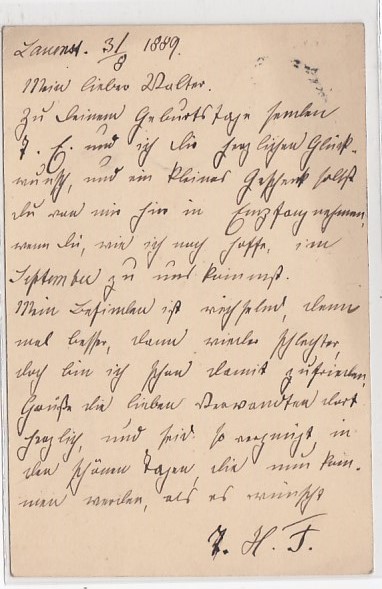 Lauenst. 31/8 1889.
Mein lieber Walter.
Zu Deinem Geburtstage senden
T. E. und ich die herzlichsten Glück-
wünsche, und ein kleines Geschenk sollst
Du von mir hier in Empfang nehmen,
wenn Du, wie ich noch hoffe, im
September zu uns kommst.
Mein Befinden ist wechselnd, denn
mal besser, dann wieder schlechter,
doch bin ich schon damit zufrieden.
Grüße die lieben Verwandten dort
herzlich, und seid so vergnügt in
den schönen Tagen, die nun kom-
men werden, als es wünscht
T. H. F.